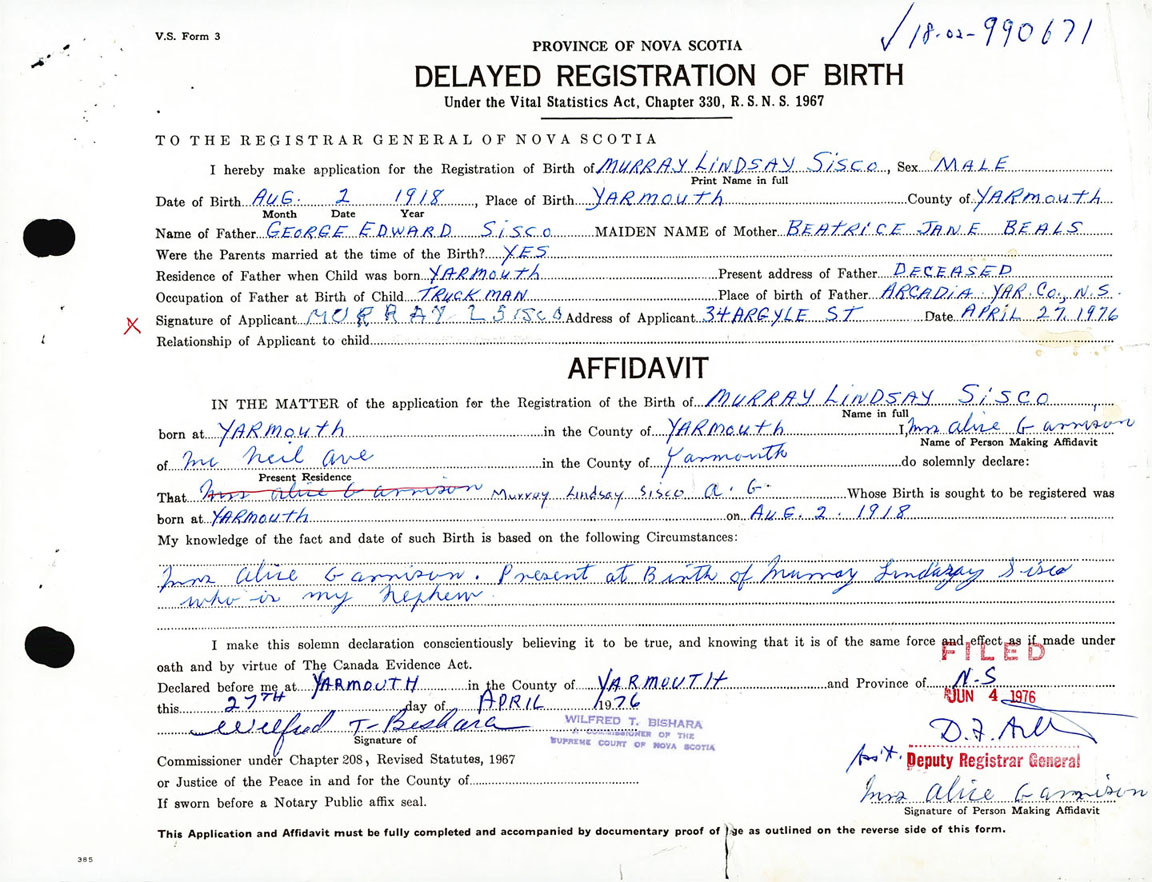 V.S. Form 3
✓18-02-990671
PROVINCE OF NOVA SCOTIA
DELAYED REGISTRATION OF BIRTH
Under the Vital Statistics Act, Chapter 330, R.S.N.S. 1967
TO THE REGISTRAR GENERAL OF NOVA SCOTIA
I hereby make application for the Registration of Birth of MURRAY LINDSAY SISCO, Sex MALE
Print Name in full
Date of Birth AUG. 2 1918, Place of Birth YARMOUTH County of YARMOUTH
Month Date Year
Name of Father GEORGE EDWARD SISCO MAIDEN NAME of Mother BEATRICE JANE BEALS
Were the Parents married at the time of the Birth? YES
Residence of Father when Child was born YARMOUTH Present address of Father DECEASED
Occupation of Father at Birth of Child TRUCKMAN Place of birth of Father ARCADIA YAR. CO., N.S.
X Signature of Applicant MURRAY L SISCO Address of Applicant 34 ARGYLE ST Date APRIL 27, 1976
Relationship of Applicant to child
AFFIDAVIT
IN THE MATTER of the application for the Registration of the Birth of MURRAY LINDSAY SISCO
Name in full
born at YARMOUTH in the County of YARMOUTH I, Mrs Alice Garrison
Name of Person Making Affidavit
of Mc Neil Ave in the County of Yarmouth do solemnly declare:
Present Residence
That Mrs Alice Garrison Murray Lindsay Sisco A. G. Whose Birth is sought to be registered was
born at YARMOUTH on AUG. 2. 1918
My knowledge of the fact and date of such Birth is based on the following Circumstances:
Mrs Alice Garrison. Present at Birth of Murray Sisco
who is my Nephew.
I make this solemn declaration conscientiously believing it to be true, and knowing that it is of the same force and effect as if made under
FILED
oath and by virtue of The Canada Evidence Act.
Declared before me at YARMOUTH in the County of YARMOUTH and Province of N-S
this 27TH day of APRIL 1976
JUN 4 1976
Wilfred T. Bishara
WILFRED T. BISHARA
A COMMISSIONER OF THE
SUPREME COURT OF NOVA SCOTIA
Signature of
Commissioner under Chapter 208, Revised Statutes, 1967
Ass't. Deputy Registrar General
or Justice of the Peace in and for the County of
Mrs Alice Garrison
If sworn before a Notary Public affix seal.
Signature of Person Making Affidavit
This Application and Affidavit must be fully completed and accompanied by documentary proof of age as outlined on the reverse side of this form.
385